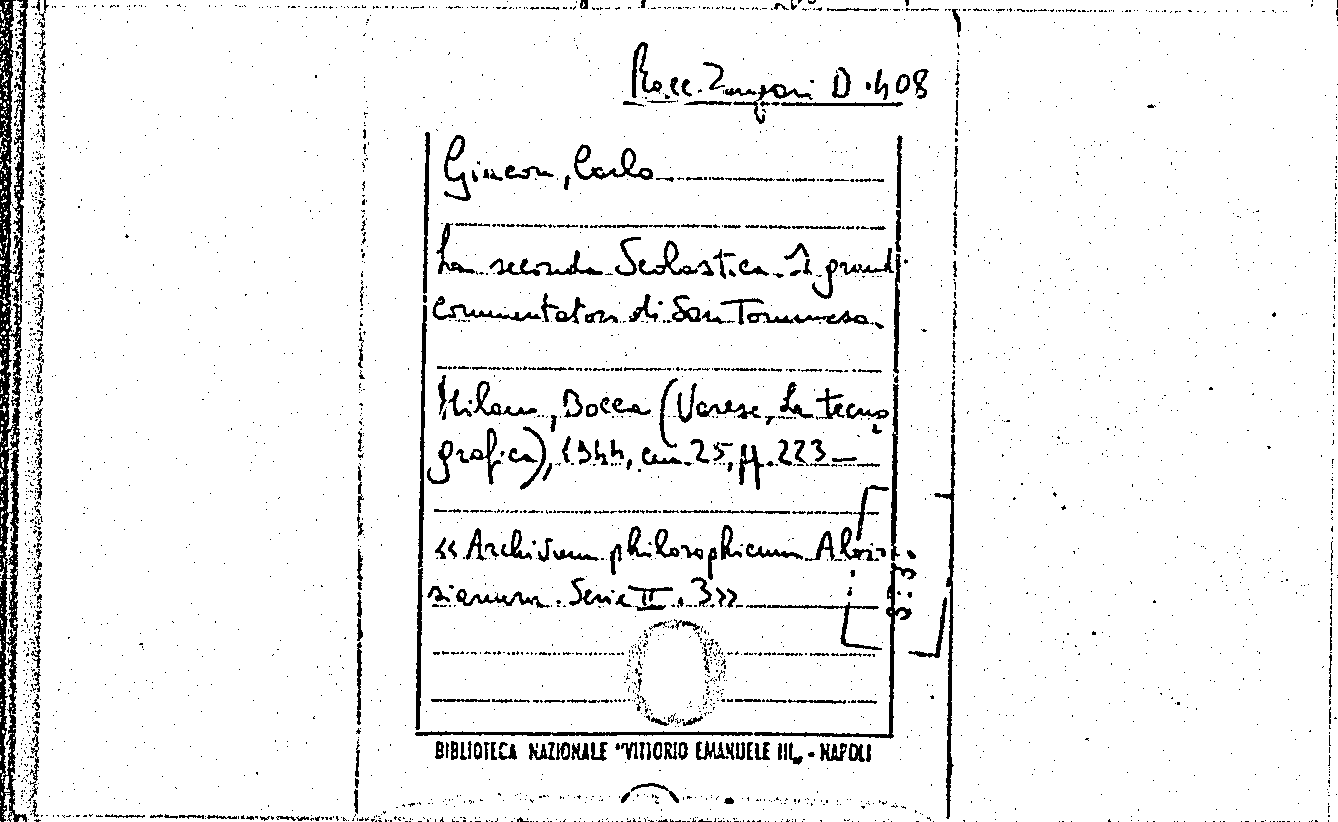 Racc. Zangari D 408
Giacon, Carlo
La seconda Scolastica. I grandi
commentatori di San Tommaso.
Milano, Bocca (Varese, La tecno
grafica), 1944, cm. 25, pp. 223 —
«Archivum philosophicum Aloi-
sianum. Serie II. 3»
BIBLIOTECA NAZIONALE "VITTORIO EMANUELE III„ - NAPOLI